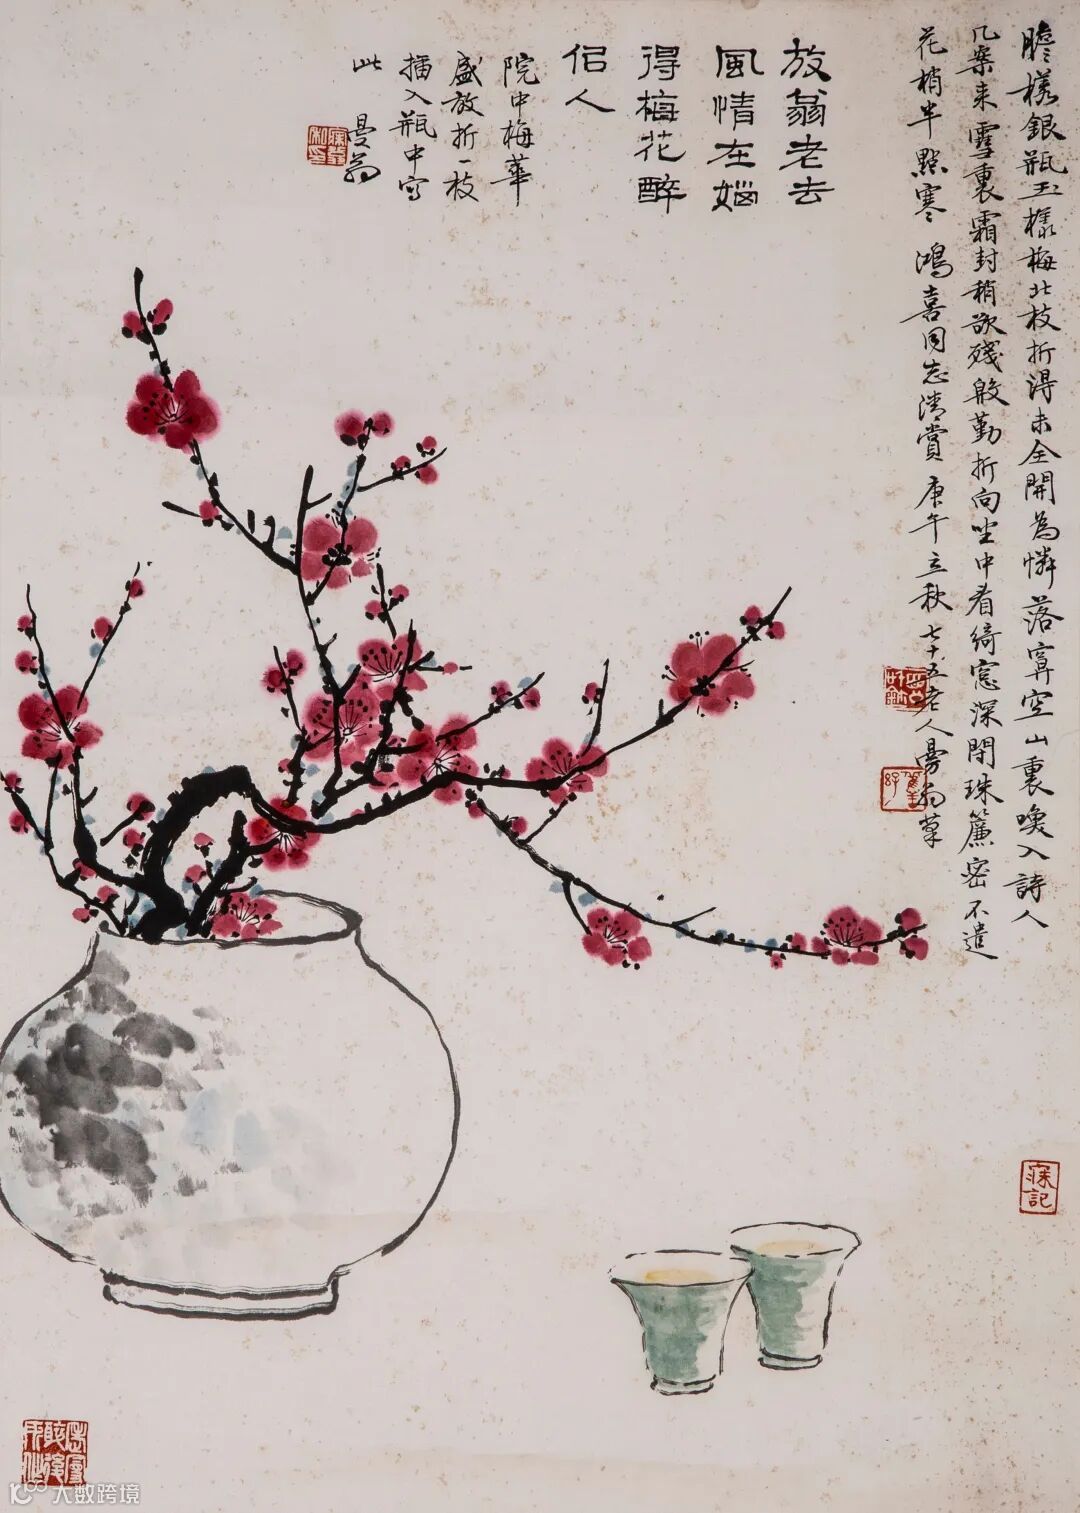 膽樣銀瓶玉樣梅北枝折得未全開為憐落寞空山裏喚入詩人
几案来雪裏霜封稍欲殘殷勤折向坐中看綺窓深閉珠簾密不遣
花梢半點寒 鴻喜同志清賞 庚午立秋七十五老人曼翁草
放翁老去
風情在惱
得梅花醉
似人
院中梅華
盛放折一枝
插入瓶中寫
此 曼翁
大数跨境